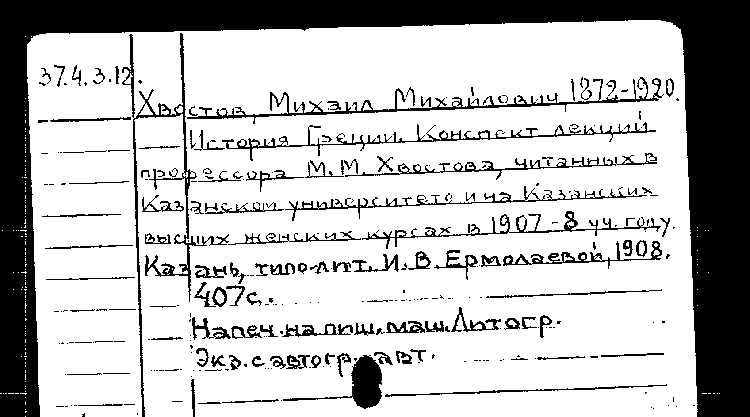 37.4.3.12.
Хвостов, Михаил Михайлович, 1872-1920.
История Греции. Конспект лекций
профессора М.М. Хвостова, читанных в
Казанском университете и на Казанских
высших женских курсах в 1907-8 уч. году.
Казань, типо-лит. И.В. Ермолаевой, 1908.
407с.
Напеч. на пиш. маш. Литогр.
Экз. с автогр. авт.